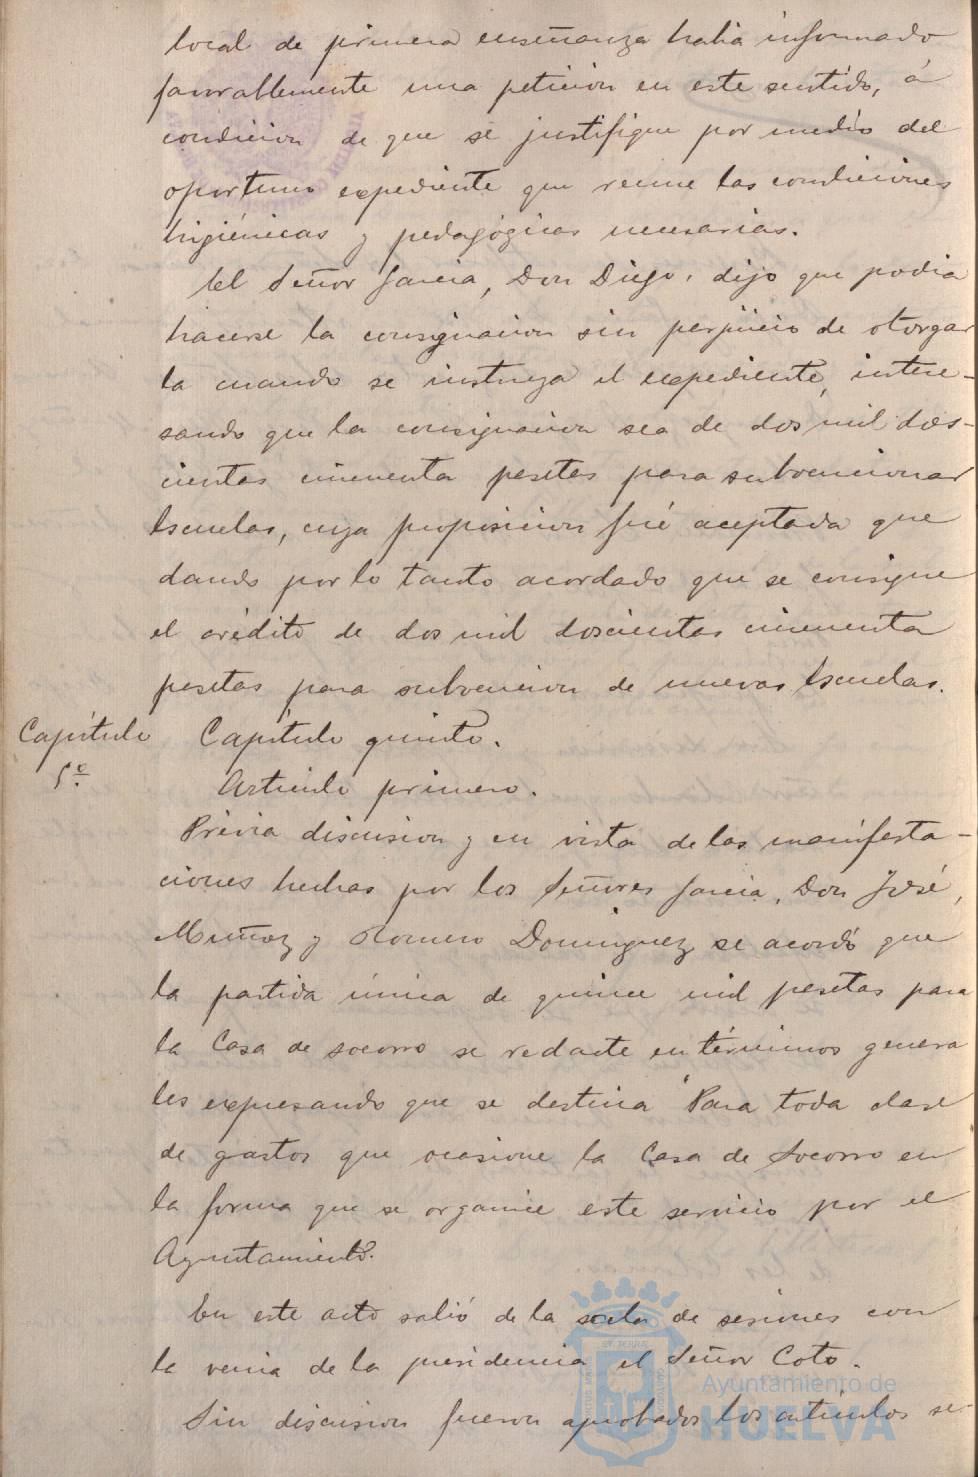 local de primera enseñanza habia informado
favorablemente una peticion en este sentido, á
condicion de que se justifique por medio del
oportuno expediente que reune las condiciones
higiénicas y pedagógicas necesarias.
El Señor Garcia, Don Diego, dijo que podia
hacerse la consignacion sin perjuicio de otorgar
la cuando se instruya el expediente, intere-
sando que la consignacion sea de dos mil dos-
cientas cincuenta pesetas para subvencionar
Escuelas, cuya proposicion fué aceptada que
dando por lo tanto acordado que se consigne
el crédito de dos mil doscientas cincuenta
pesetas para subvencion de nuevas Escuelas.
Capítulo
5º
Capítulo quinto.
Artículo primero.
Prévia discusion y en vista de las manifesta-
ciones hechas por los Señores Garcia, Don José,
Muñoz y Romero Dominguez se acordó que
la partida única de quince mil pesetas para
la Casa de socorro se redacte en términos genera
les expresando que se destina "Para toda clase
de gastos que ocasione la Casa de Socorro en
la forma que se organice este servicio por el
Ayuntamiento.
En este acto salió de la sala de sesiones con
la venia de la presidencia el Señor Coto.
Sin discusion fueron aprobados los artículos se-
Ayuntamiento de
HUELVA